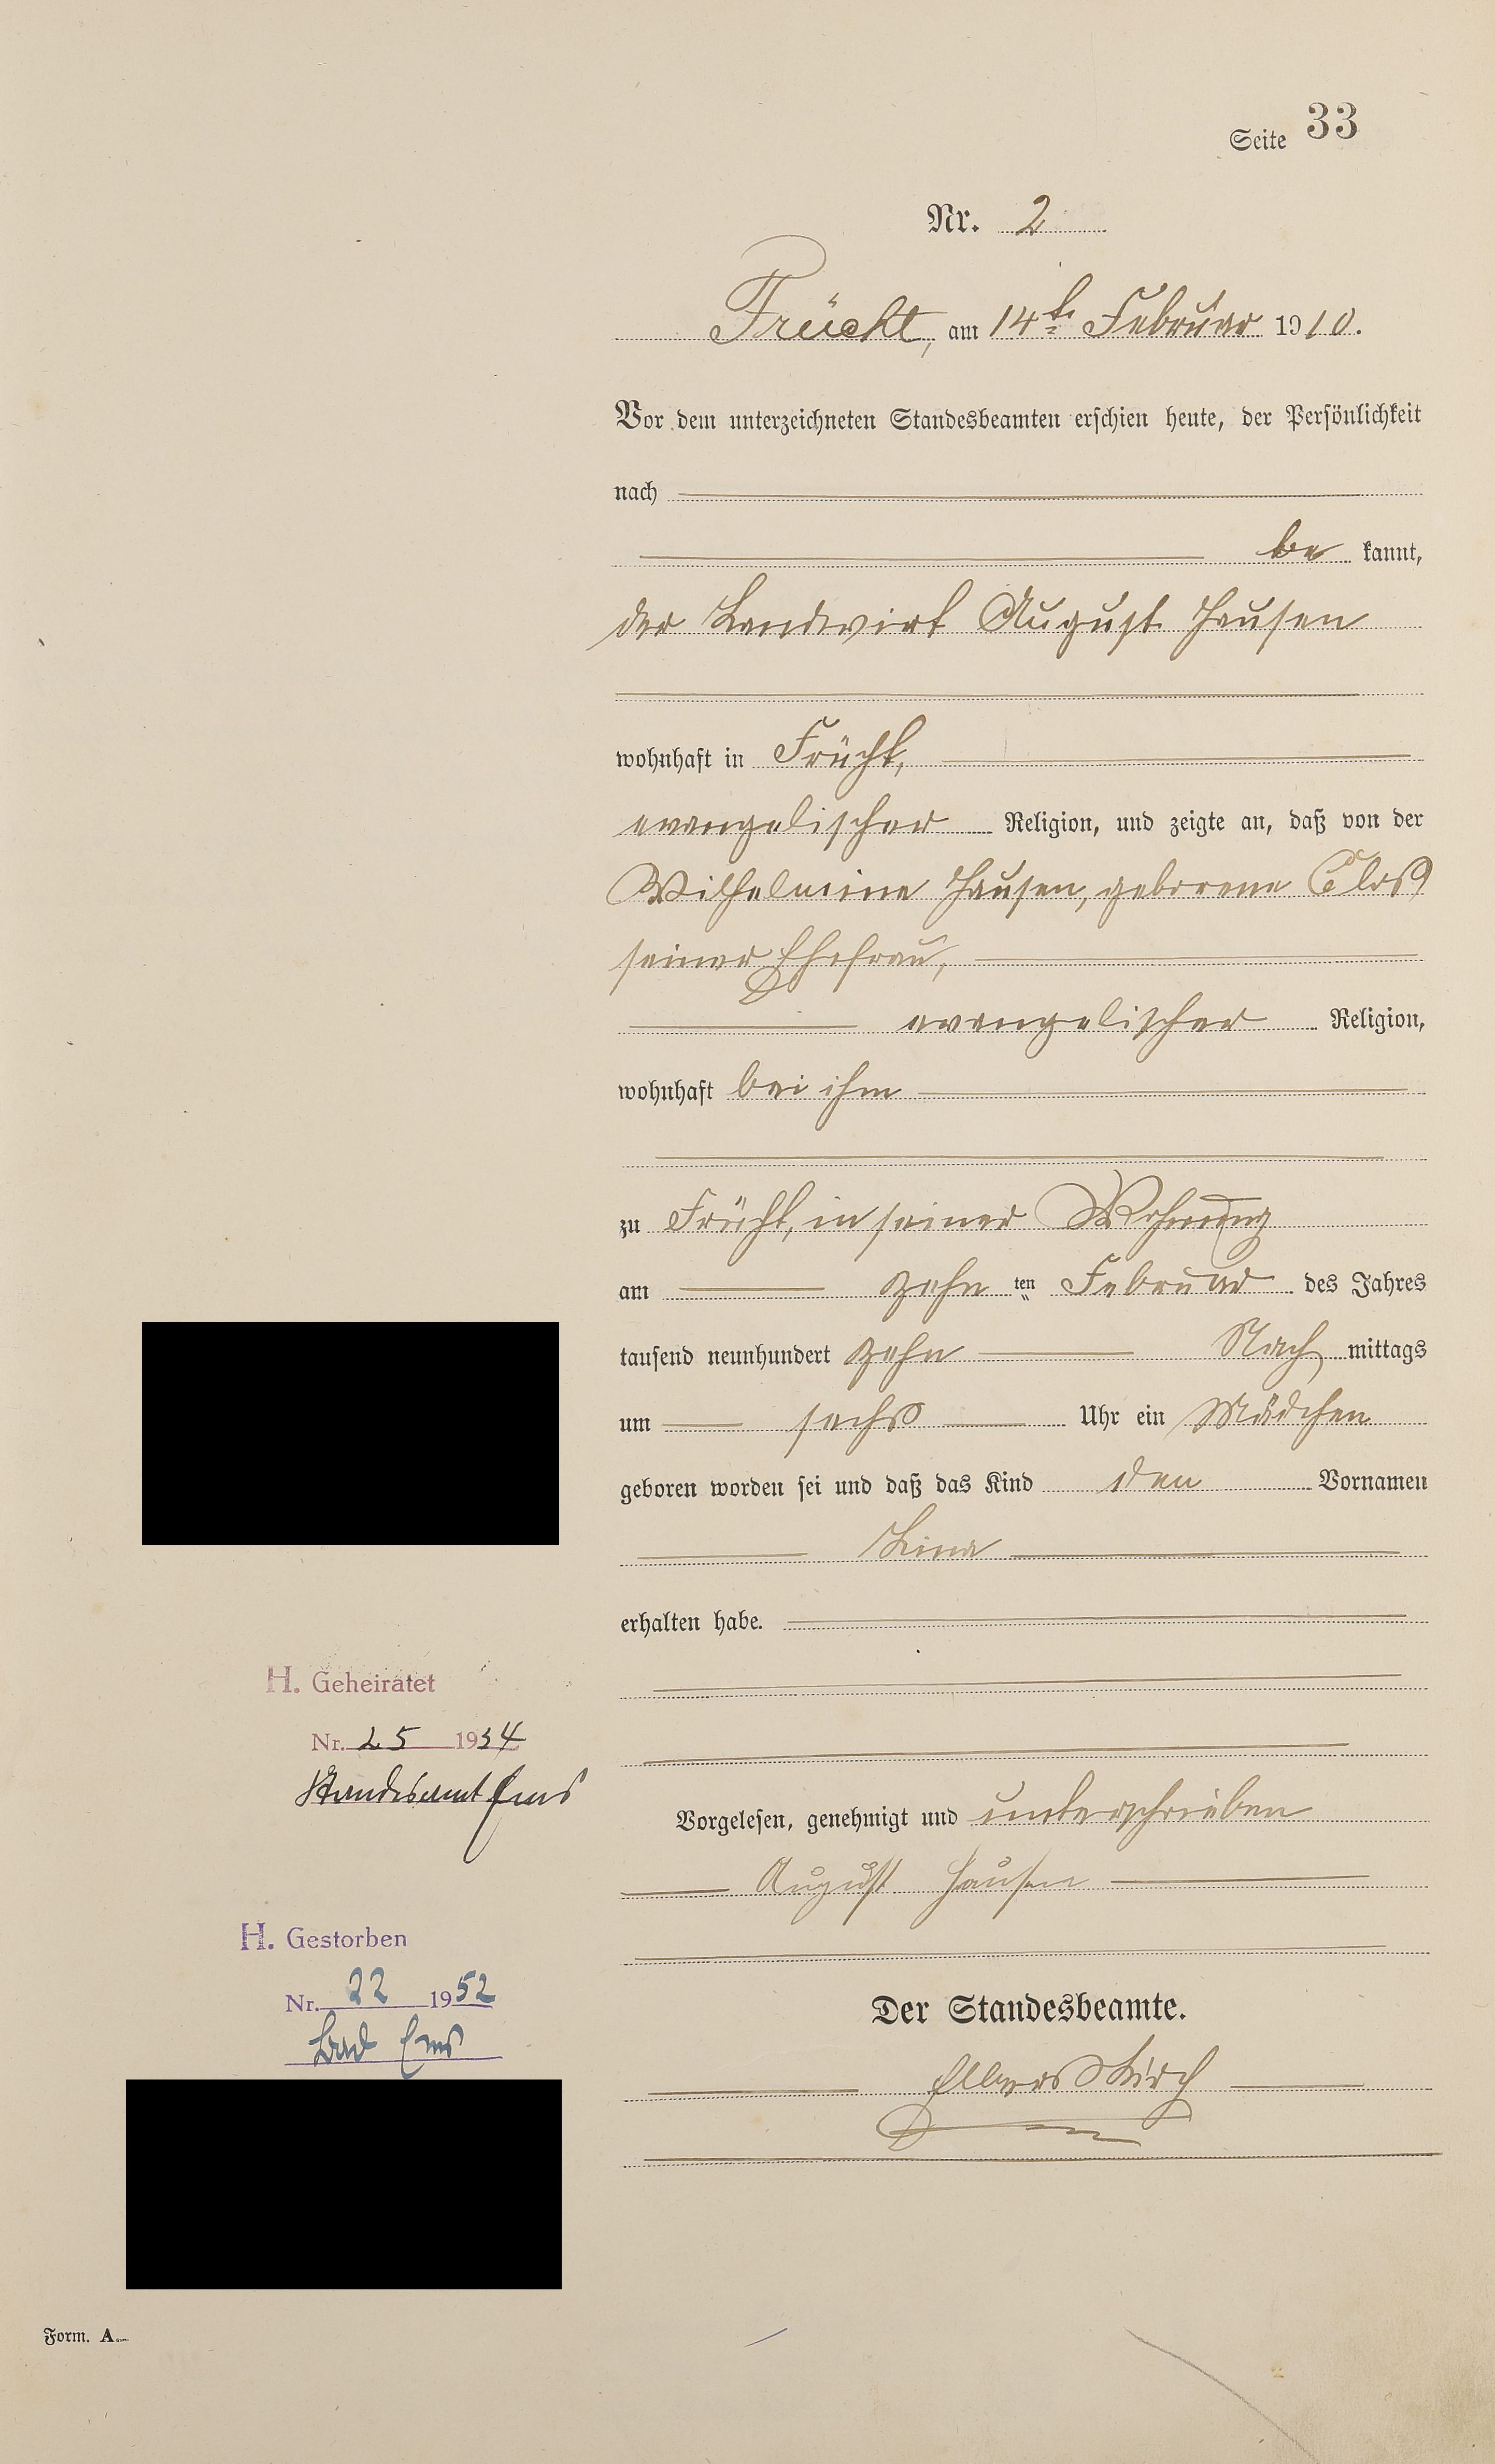 Seite 33
Nr. 2
Frücht, am 14ten Februar 1910.
Vor dem unterzeichneten Standesbeamten erschien heute, der Persönlichkeit
nach
be kannt,
der Landwirt August Hausen
wohnhaft in Frücht,
evangelischer Religion, und zeigte an, daß von der
Wilhelmine Hausen, geborene Clos
seiner Ehefrau,
evangelischer Religion,
wohnhaft bei ihm
zu Frücht, in seiner Wohnung
am zehn ten Februar des Jahres
tausend neunhundert zehn Nach mittags
um sechs Uhr ein Mädchen
geboren worden sei und daß das Kind den Vornamen
Lina
erhalten habe.
Vorgelesen, genehmigt und unterschrieben
August Hausen
Der Standesbeamte.
H. Geheiratet
Nr. 25 1934
Standesamt Ems
H. Gestorben
Nr. 22 1952
Bad Ems
Form. A.